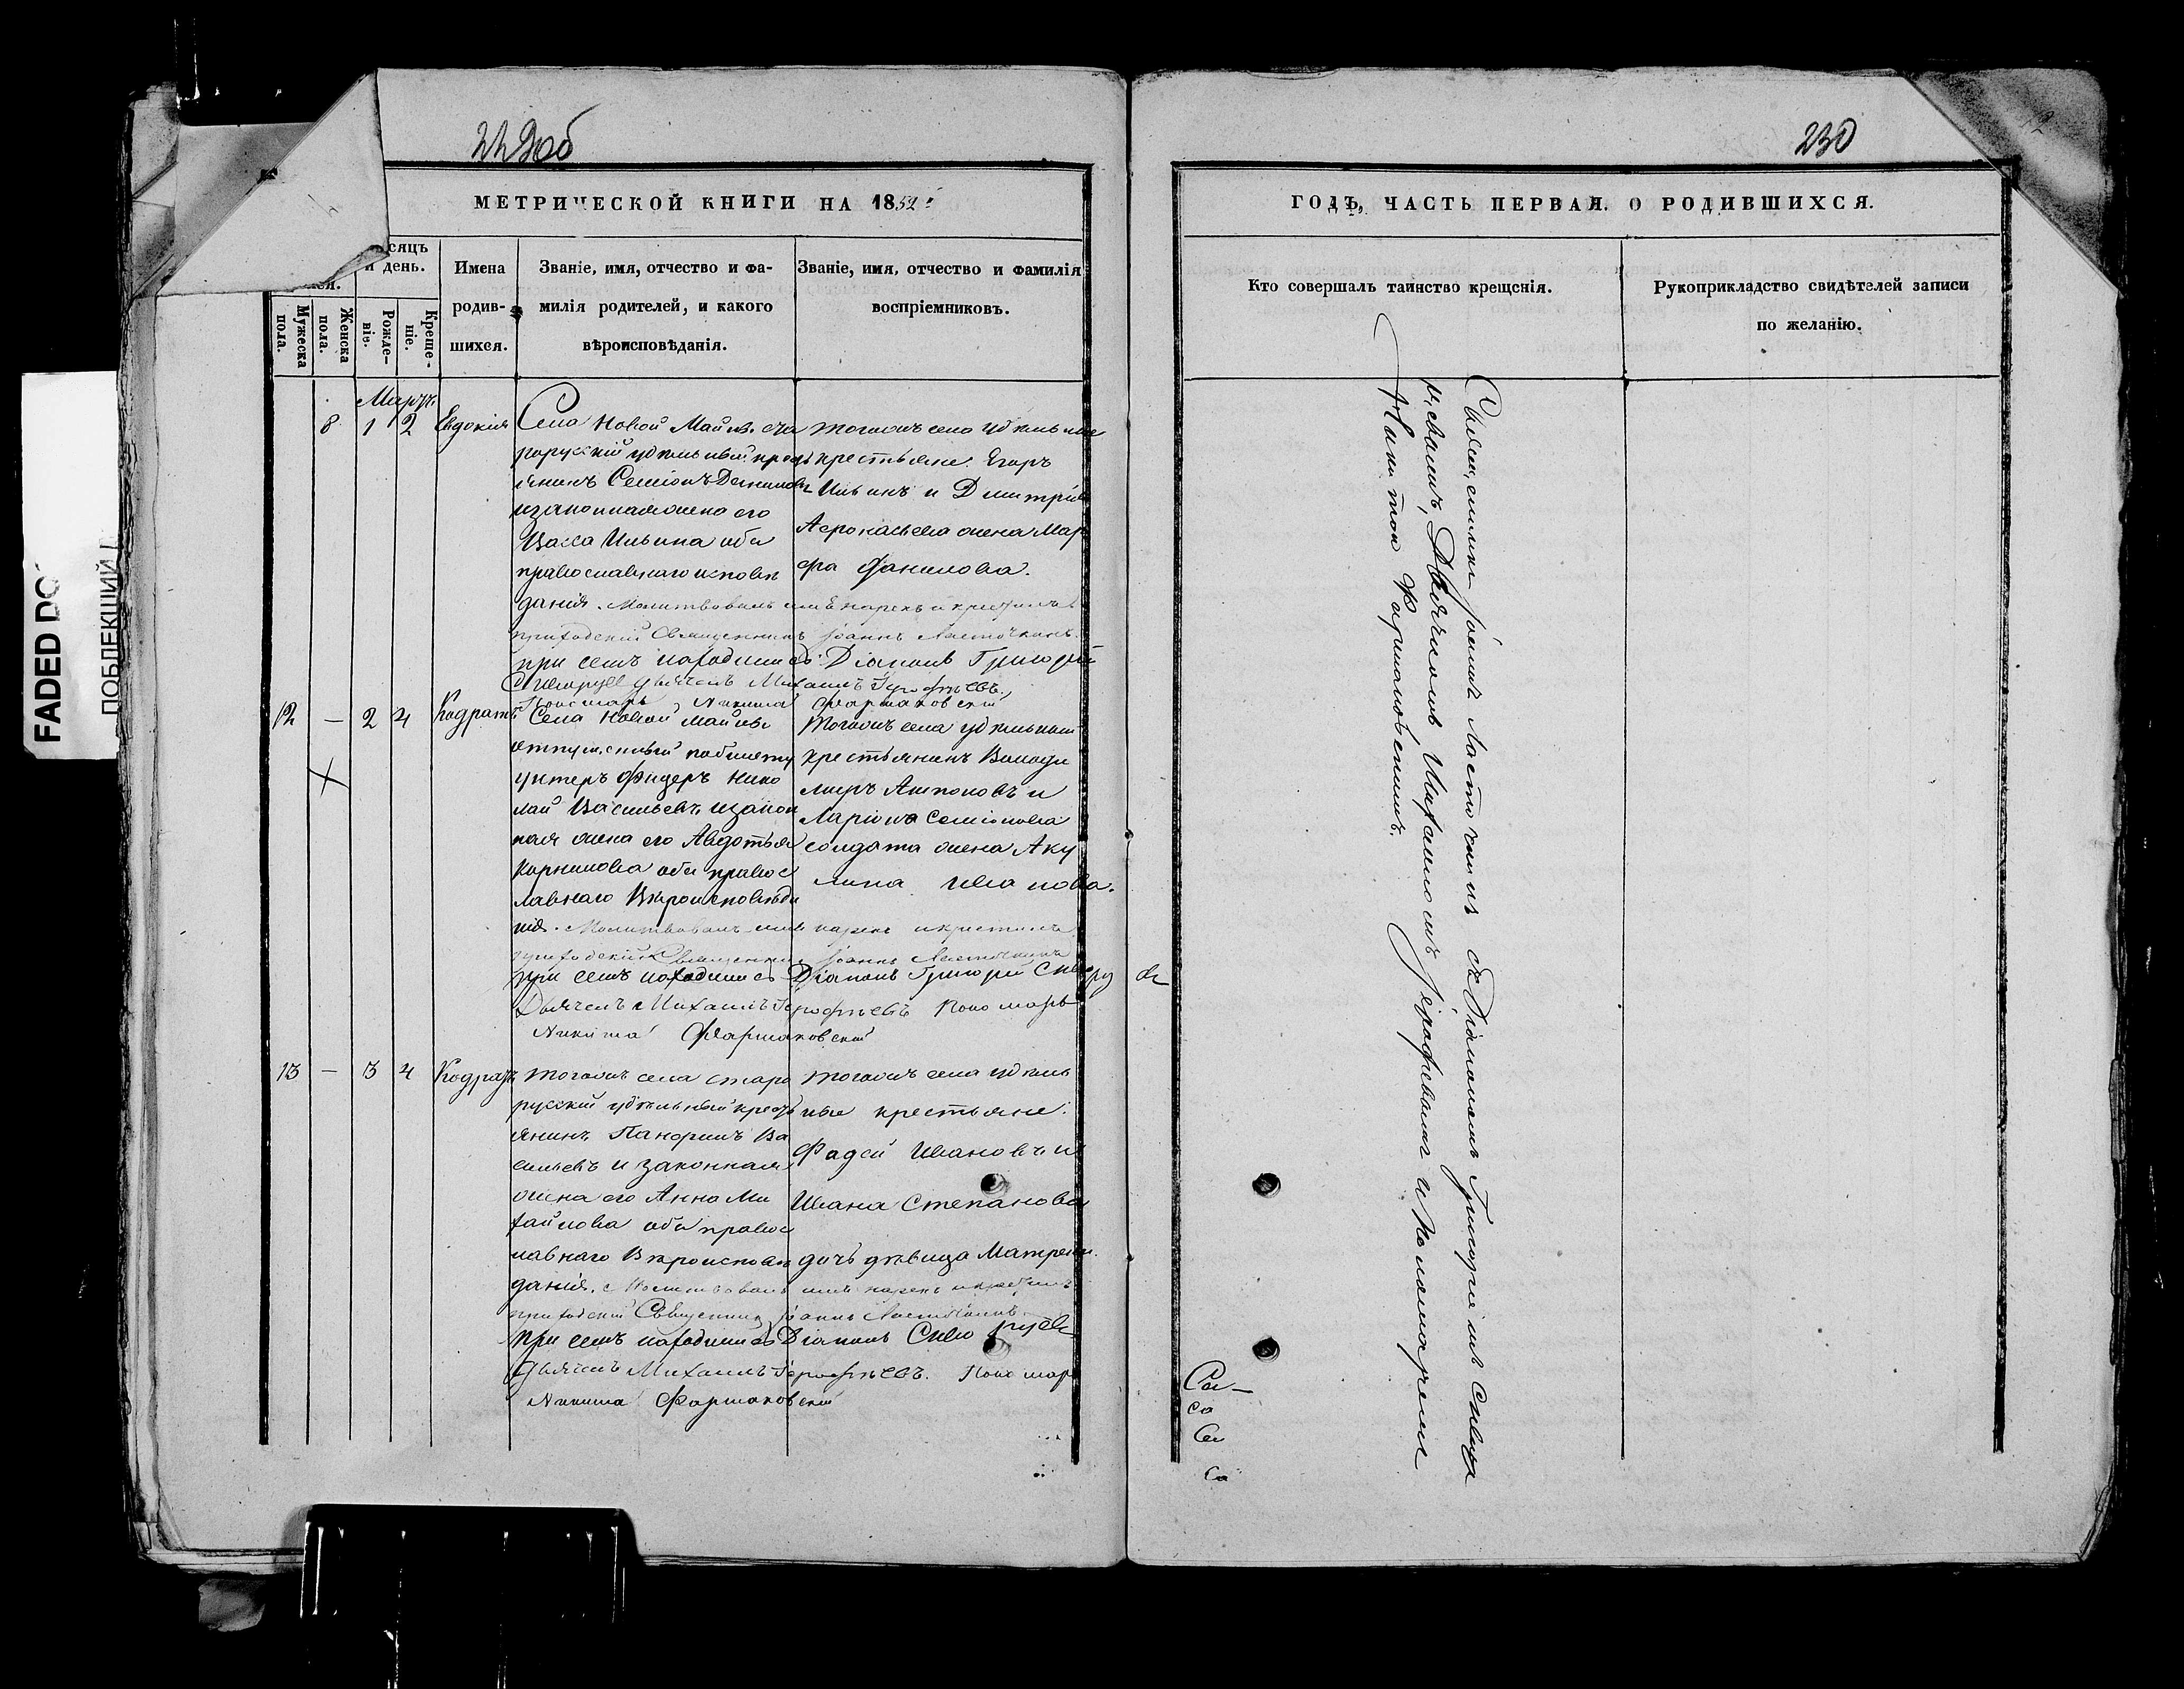 229об
МЕТРИЧЕСКОЙ КНИГИ НА 1852
сяцъ
и день.
Мужеска пола.
Женска пола.
Рожде-ніе.
Креще-ніе.
Имена родив-шихся.
Званіе, имя, отчество и фа-
милія родителей, и какого
вѣроисповѣданія.
Званіе, имя, отчество и фамилія
воспріемниковъ.
Мартъ
8 1 2 Евдокія
Села Новой Майны ста
рорусскій удѣльный крестъ
янинъ Семіонъ Даниловъ
и законная жена его
Васса Ильина оба
православнаго исповѣ
данія. Молитвовалъ имѣ нарекъ и крестилъ
приходскій Священникъ Іоаннъ Ласточкинъ
при семъ находились: Діаконъ Григорій
Дьячекъ Михаилъ Іерофѣевъ,
Пономарь Никита Фармаковскій
тогожъ села удѣльные
крестьяне. Егоръ
Ильинъ и Димитрія
жена Мар
фа Данилова.
12 — 2 4 Кодратъ
Села Новой Майны
отпускный по билету
унтеръ Фицеръ Нико
лай Васильевъ и закон
ная жена его Авдотья
Корнилова оба правос
лавнаго Вѣроисповѣда
нія. Молитвовалъ имѣ нарекъ и крестилъ
приходскій Священникъ Іоаннъ Ласточкинъ
при семъ находились Діаконъ Григорій Сневру
Дьячекъ Михаилъ Іерофѣевъ Пономарь
Никита Фармаковскій
тогожъ села удѣльный
крестьянинъ Володи
миръ Антоновъ и
Ларіона Семіонова
солдата жена Аку
лина Иванова.
13 — 3 4 Кодратъ
тогожъ села старо
русскій удѣльный кресть
янинъ Панфилъ Ва
сильевъ и законная
жена его Анна Ми
хайлова оба правос
лавнаго Вѣроисповѣ
данія. Молитвовалъ имѣ нарекъ и крестилъ
приходскій Священникъ Іоаннъ Ласточкинъ
при семъ находились Діаконъ
Дьячекъ Михаилъ Іерофѣевъ. Пономарь
Никита Фармаковскій
тогожъ села удѣль
ные крестьяне.
Фадей Ивановъ и
Ивана Степанова
дочь дѣвица Матрена.
230
ГОДЪ, ЧАСТЬ ПЕРВАЯ. О РОДИВШИХСЯ.
Кто совершалъ таинство крещенія.
Рукоприкладство свидѣтелей записи
по желанію.
Священникъ Іоаннъ Ласточкинъ съ Діакономъ Григоріемъ
Дьячкомъ Михаиломъ Іерофѣевымъ и Пономаремъ
Никитою Фармаковскимъ.
FADED DO
ПОБЛЕКШИЙ